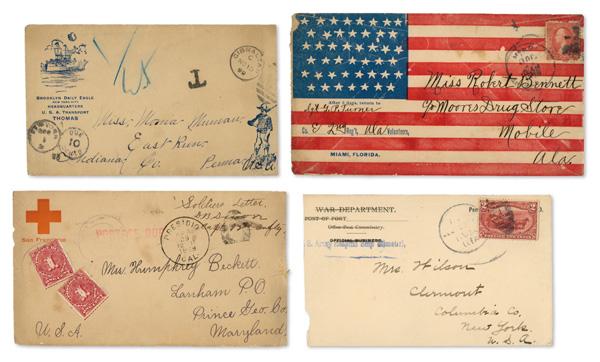 BROOKLYN DAILY EAGLE
NEW YORK CITY
HEADQUARTERS
U. S. A. TRANSPORT
THOMAS
T
GIBRALTAR
Miss. Mema
East Run,
Indiana Co. Penna
DUE
10
CENTS
After 5 days, return to
Co. 2nd Reg't, Ala Volunteers,
MIAMI, FLORIDA.
Miss Robert Bennett
℅ Moores Drug Store
Mobile
Ala.
San Francisco
POSTAGE DUE
Soldiers Letter.
PRESIDIO
CAL.
1
1
Mrs. Humphrey Beckett.
Lanham P.O
Prince Geo. Co.
Maryland,
U.S.A.
WAR DEPARTMENT.
OFFICIAL BUSINESS.
2 2
Mrs. Wilson
Clermont
Columbia Co.
New York.
U.S.A.